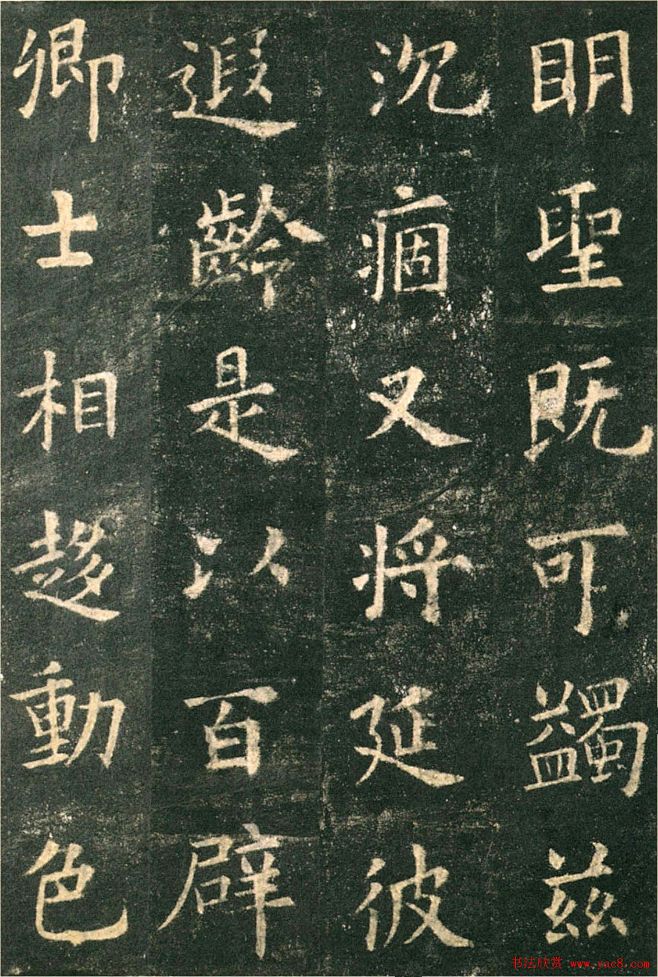 明聖既可蠲兹
沉痼又将延彼
遐齡是以百辟
卿士相趍動色
书法欣赏 www.yac8.com